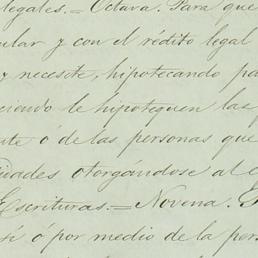 legales.= Octava. Para que
ular y con el rédito legal
y necesite, hipotecando pa
ciendo le hipotequen las
ate ó de las personas que
idades otorgándose al e
Escrituras.= Novena. E
sí ó por medio de la pers